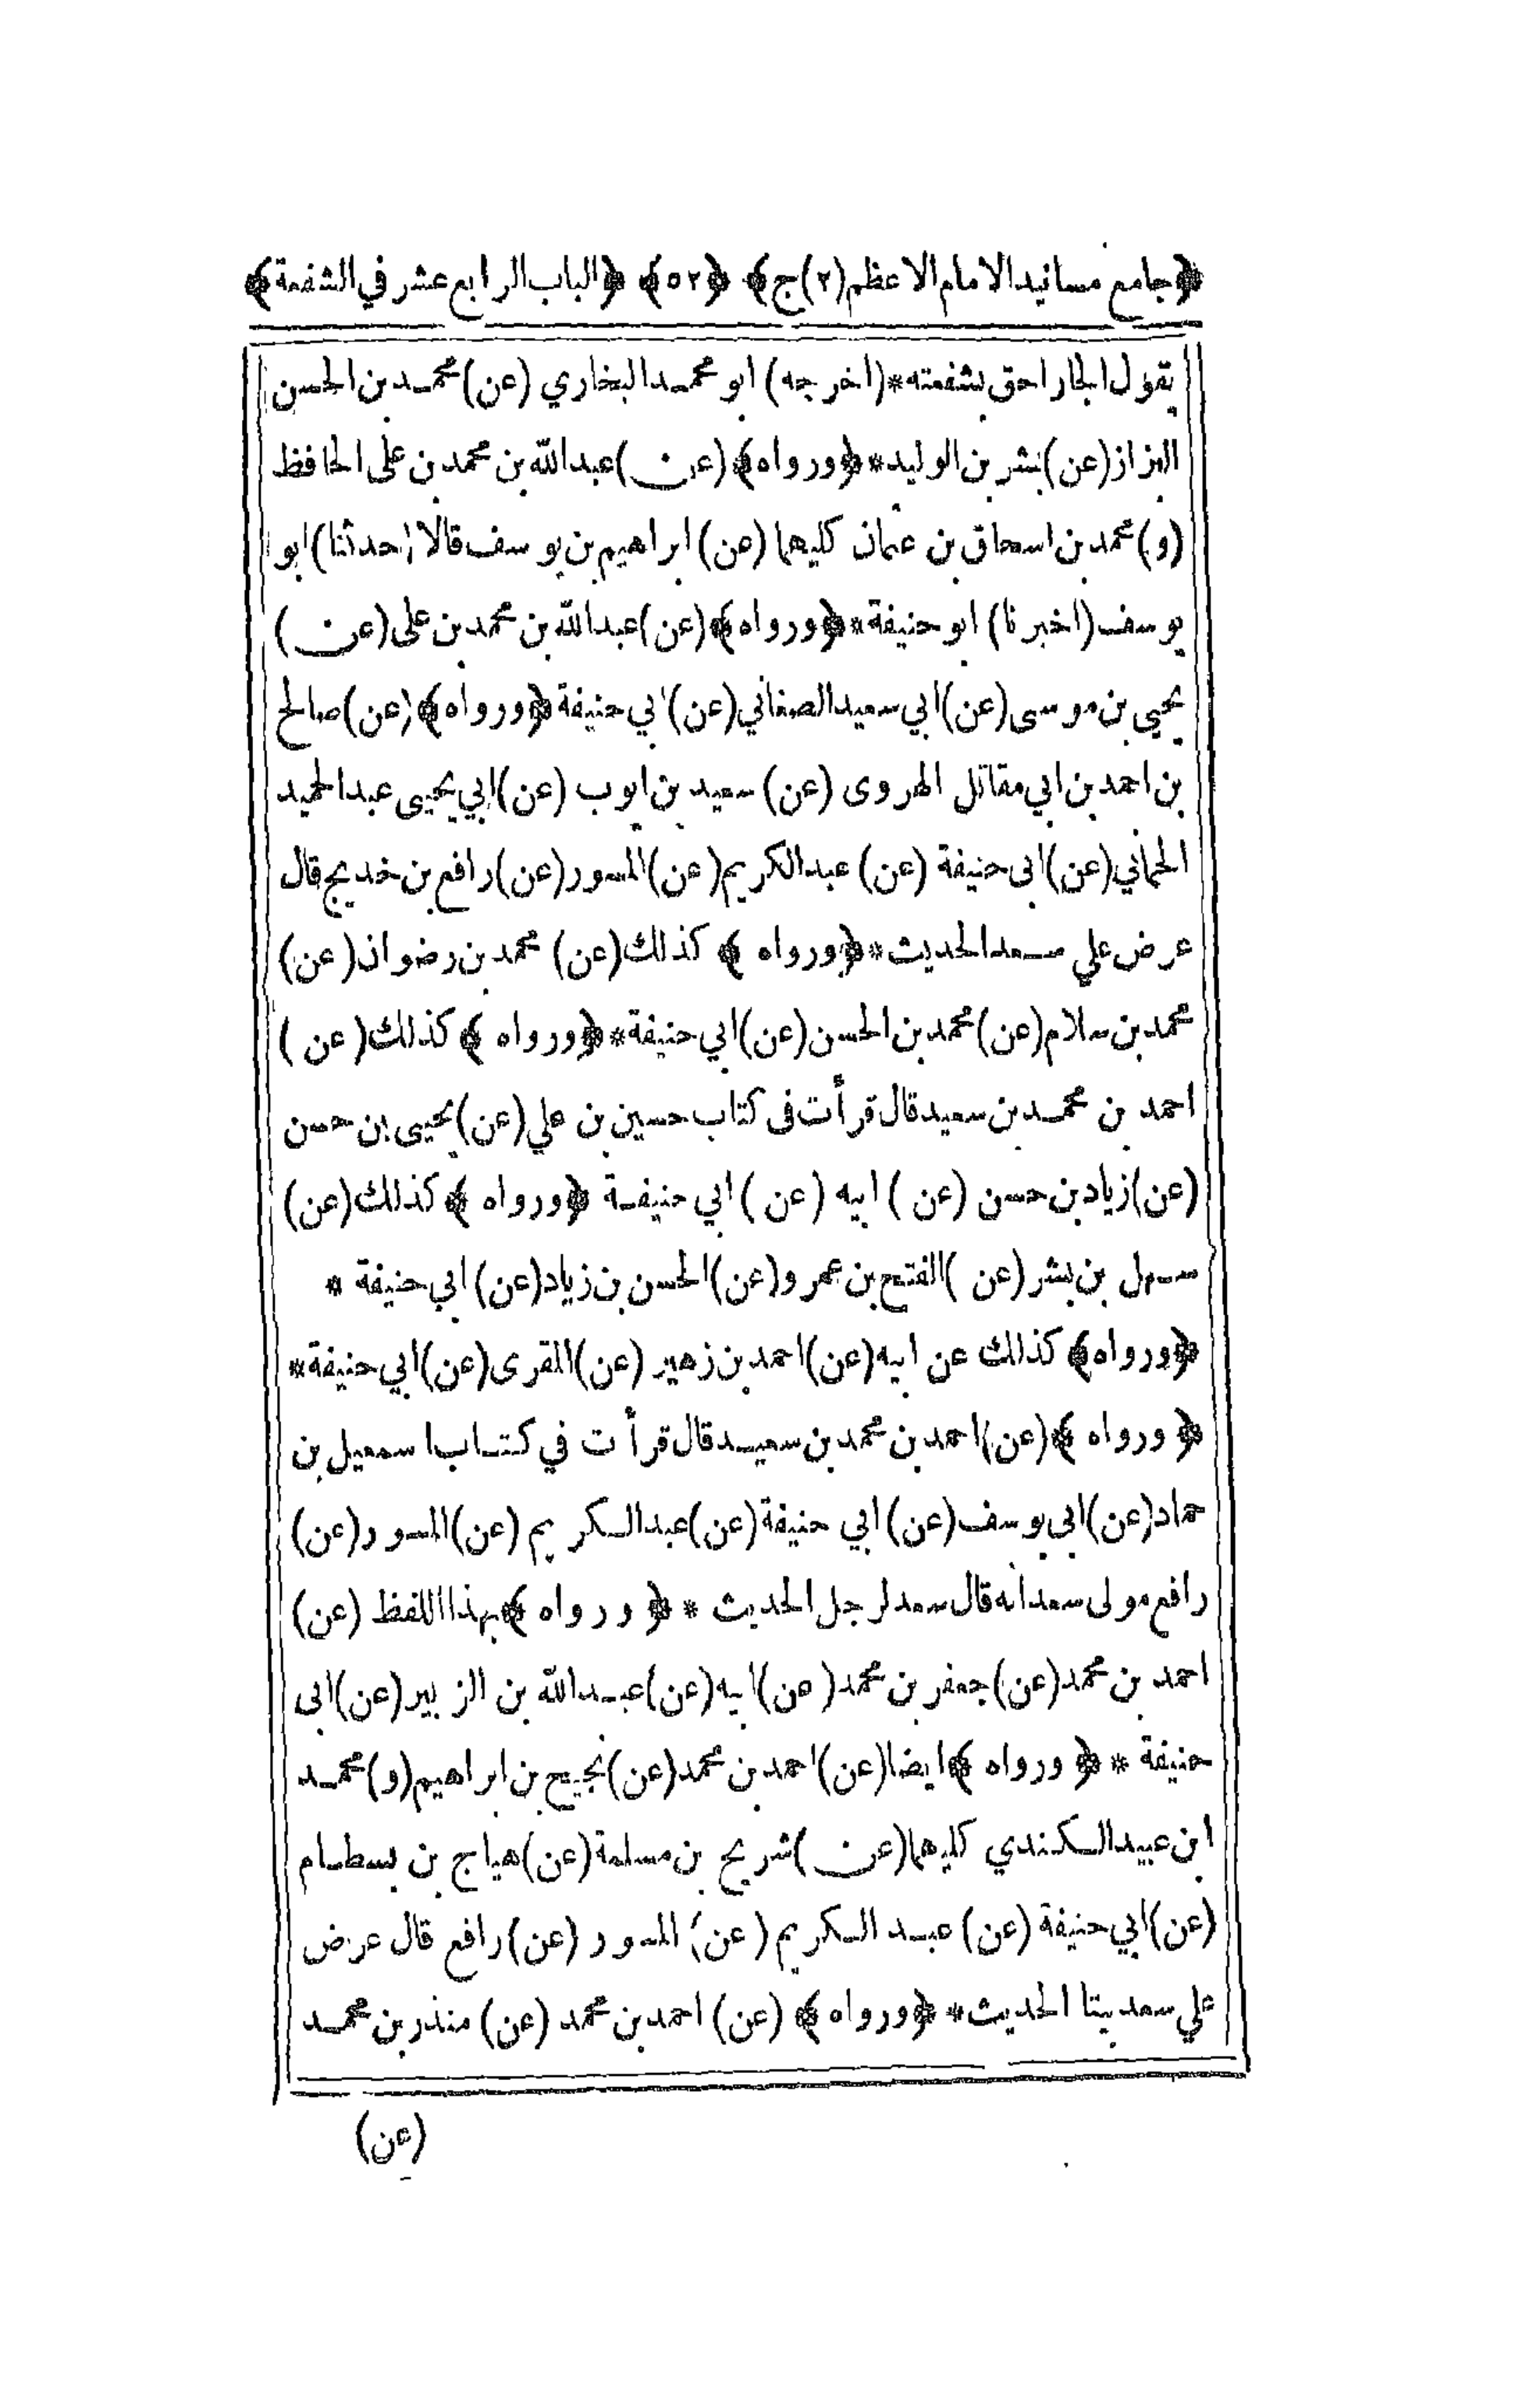 ﴿جامع مسانيد الامام الاعظم(٢)ج﴾ ﴿٥٢﴾ ﴿الباب الرابع عشر في الشفعة﴾
يقول الجار احق بشفعته*(اخرجه) ابو محمد البخاري (عن)محمد بن الحسن
البزاز(عن)بشر بن الوليد*﴿ورواه﴾(عن)عبدالله بن محمد بن على الحافظ
(و)محمد بن اسحاق بن عثمان كليهما (عن)ابراهيم بن يوسف قالا(حدثنا)ابو
يوسف(اخبرنا) ابو حنيفة*﴿ورواه﴾(عن)عبدالله بن محمد بن على(عن)
يحيى بن موسى(عن)ابي سعيد الصغاني(عن)ابي حنيفة﴿ورواه﴾(عن)صالح
بن احمد بن ابي مقاتل الهروى (عن) سعيد بن ايوب (عن)ابي يحيى عبدالحميد
الحماني(عن)ابى حنيفة (عن) عبدالكريم(عن)المسور(عن)رافع بن خديج قال
عرض علي سعد الحديث*﴿ورواه﴾ كذلك(عن) محمد بن رضوان(عن)
محمد بن سلام(عن)محمد بن الحسن(عن)ابي حنيفة*﴿ورواه﴾ كذلك(عن)
احمد بن محمد بن سعيد قال قرأت فى كتاب حسين بن علي(عن)يحيى بن حسن
(عن)زياد بن حسن (عن) ابيه (عن) ابي حنيفة ﴿ورواه﴾ كذلك(عن)
سهل بن بشر(عن)الفتح بن عمرو(عن)الحسن بن زياد(عن)ابي حنيفة *
﴿ورواه﴾ كذلك عن ابيه(عن)احمد بن زهير (عن)المقرى(عن)ابي حنيفة*
﴿ورواه﴾(عن)احمد بن محمد بن سعيد قال قرأت في كتاب اسمعيل بن
حماد(عن)ابى يوسف(عن)ابي حنيفة(عن)عبدالكريم (عن)المسور(عن)
رافع مولى سعد انه قال سعد لرجل الحديث * ﴿ورواه﴾بهذا اللفظ (عن)
احمد بن محمد(عن)جعفر بن محمد(عن)ابيه(عن)عبدالله بن الزبير(عن)ابى
حنيفة *﴿ورواه﴾ايضا(عن)احمد بن محمد(عن)نجيح بن ابراهيم(و)محمد
ابن عبيد الكندي كليهما(عن)شريح بن مسلمة(عن)هياج بن بسطام
(عن)ابي حنيفة (عن) عبد الكريم (عن) المسور (عن)رافع قال عرض
علي سعد بيتا الحديث* ﴿ورواه﴾ (عن) احمد بن محمد (عن) منذر بن محمد
(عن)